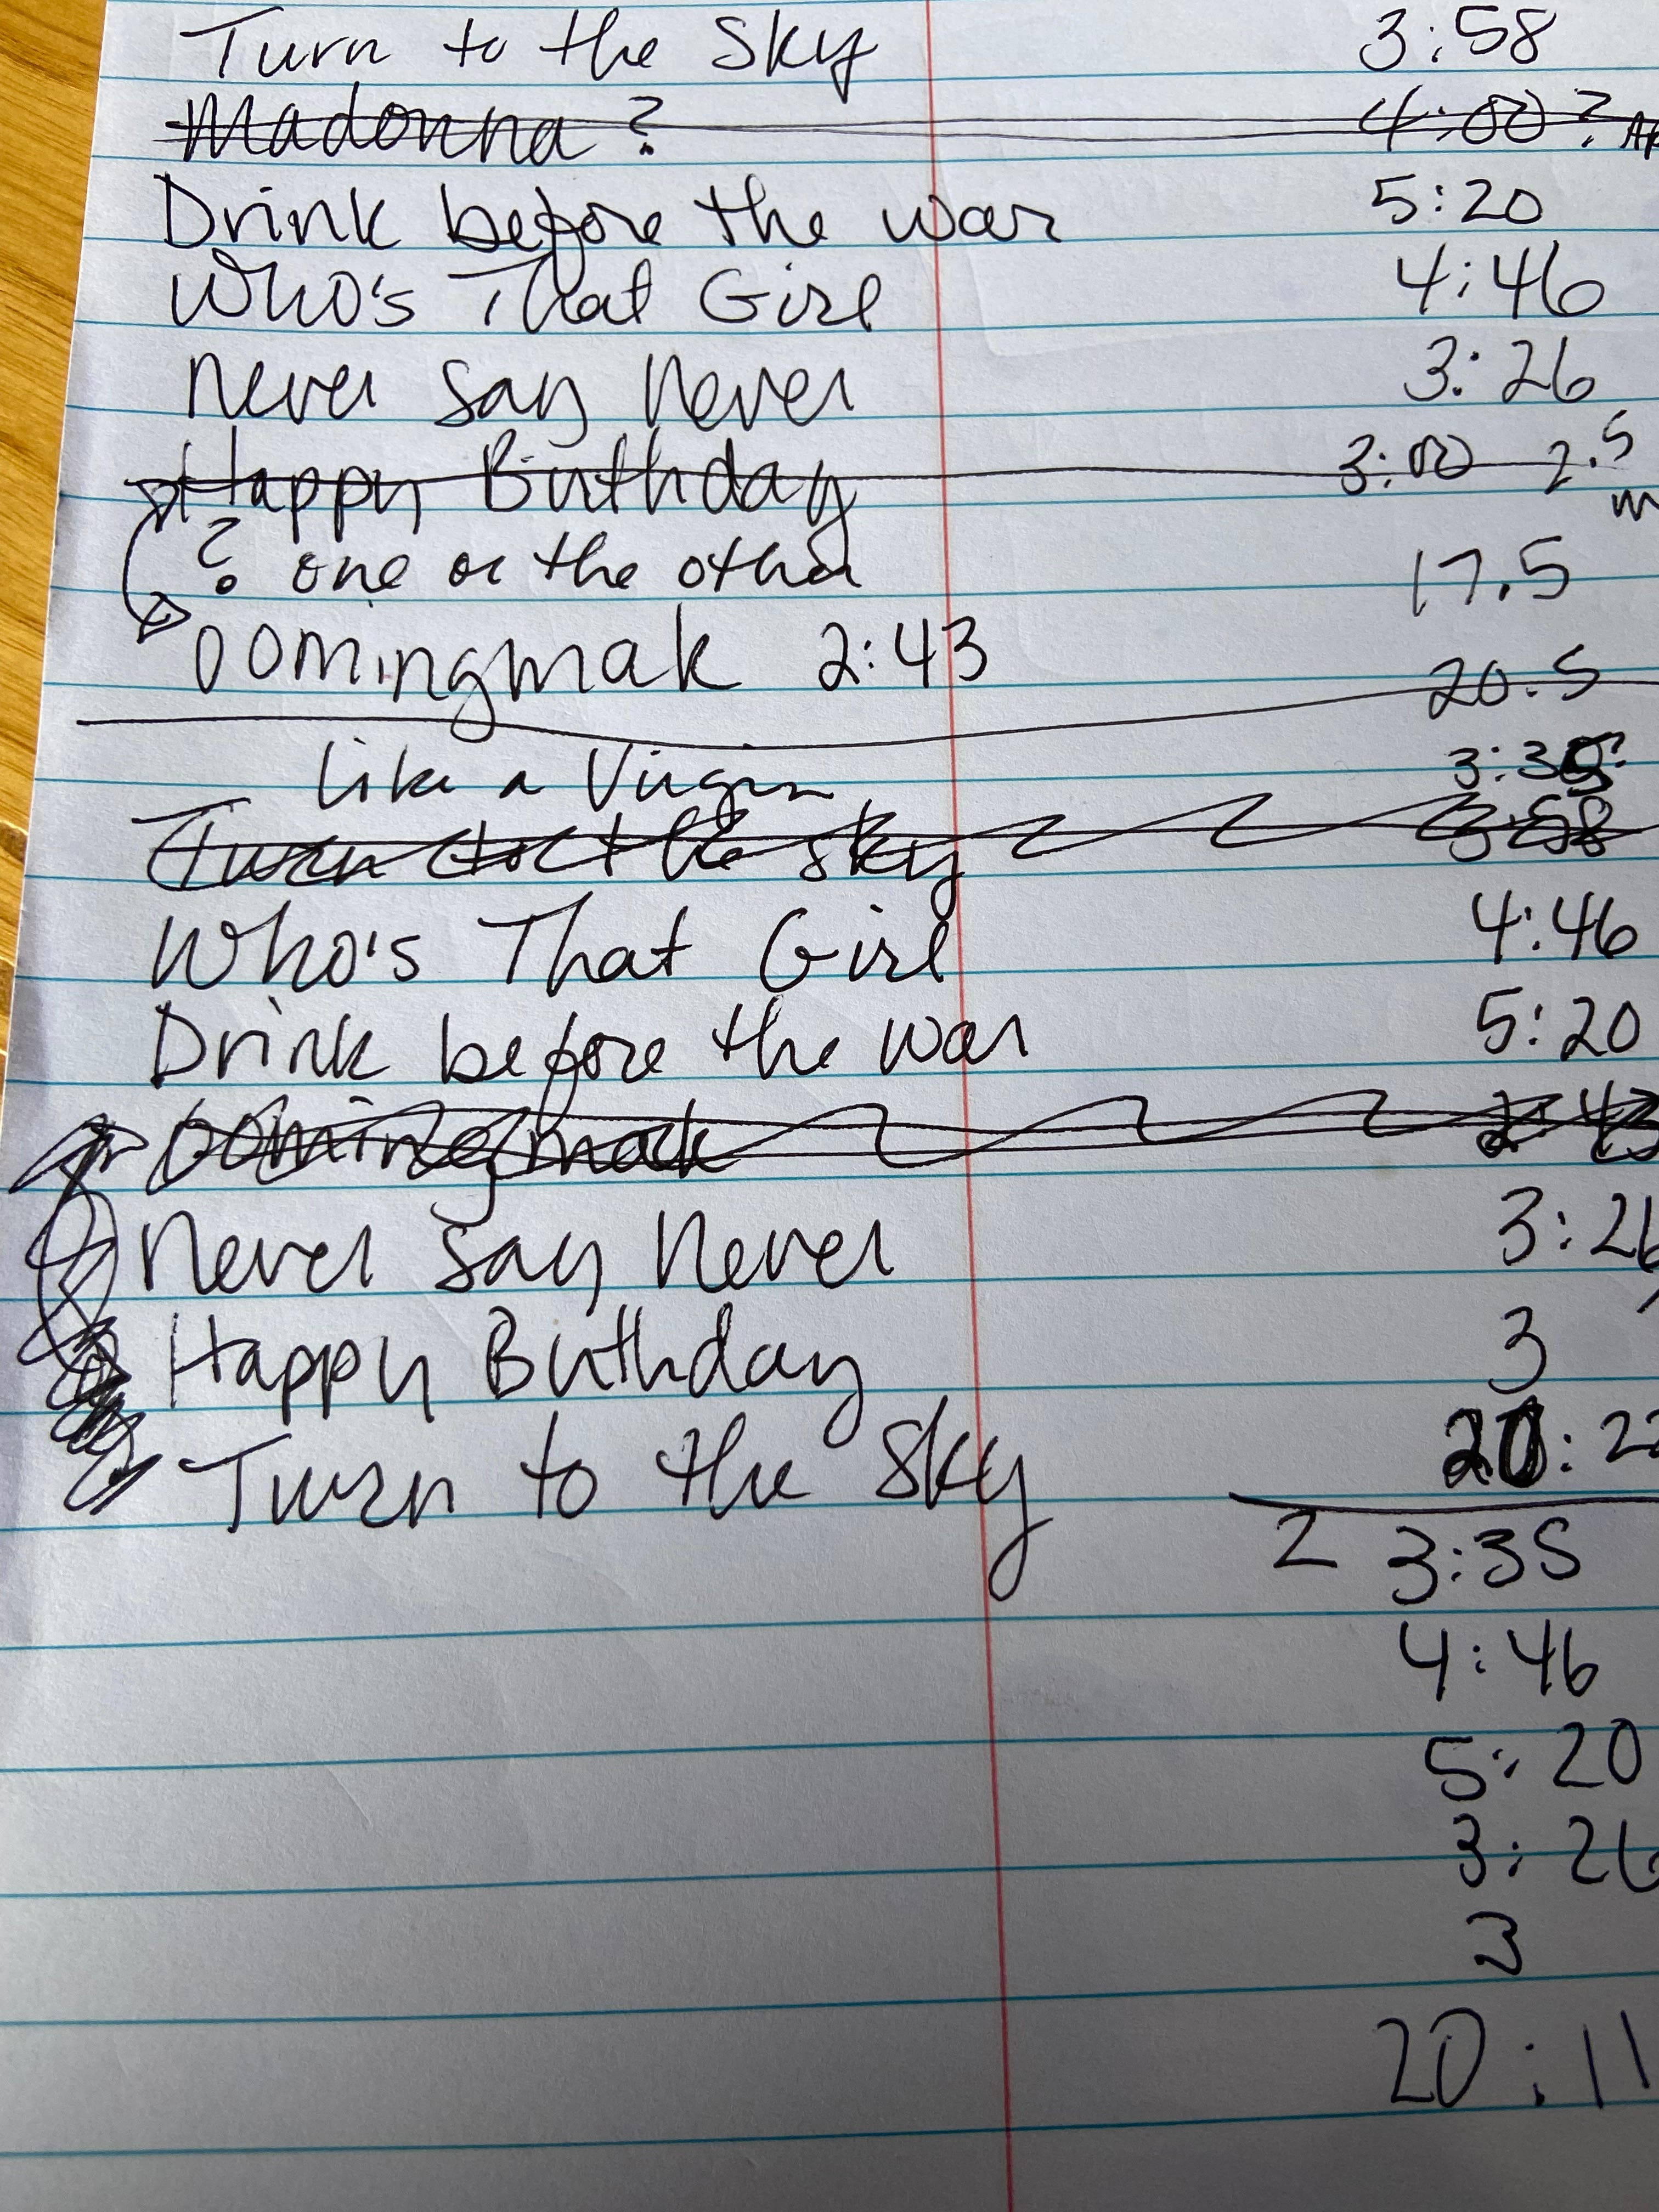 Turn to the Sky 3:58
Madonna ? 4:00 ?
Drink before the war 5:20
Who's That Girl 4:46
Never say Never 3:26
Happy Birthday 3:00 2.5
? one or the other 17.5
Oomingmak 2:43
20.5
Like a Virgin 3:35
Turn to the sky 3:58
Who's That Girl 4:46
Drink before the war 5:20
Oomingmak 2:43
Never say Never 3:26
Happy Birthday 3
Turn to the Sky
2 3:35
4:46
5:20
3:26
3
20:11